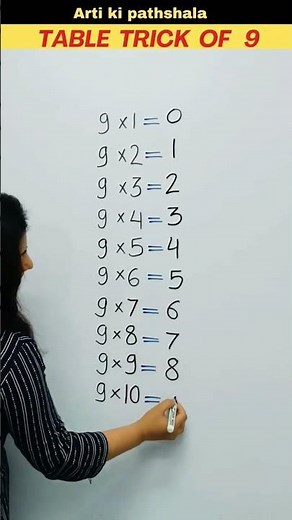 Arti ki pathshala
TABLE TRICK OF 9
9×1=0
9×2=1
9×3=2
9×4=3
9×5=4
9×6=5
9×7=6
9×8=7
9×9=8
9×10=